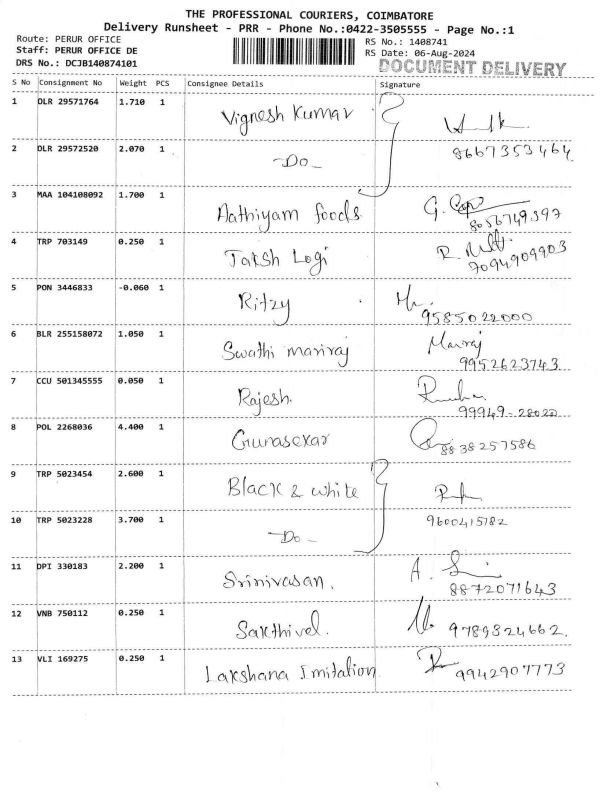 THE PROFESSIONAL COURIERS, COIMBATORE
Delivery Runsheet - PRR - Phone No.:0422-3505555 - Page No.:1
Route: PERUR OFFICE
RS No.: 1408741
Staff: PERUR OFFICE DE
RS Date: 06-Aug-2024
DRS No.: DCJB140874101
DOCUMENT DELIVERY
S No Consignment No Weight PCS Consignee Details Signature
1 DLR 29571764 1.710 1 Vignesh Kumar
8667353464
2 DLR 29572520 2.070 1 -Do-
3 MAA 104108092 1.700 1 Aathiyam foods G.
8056749397
4 TRP 703149 0.250 1 Taksh Logi R.
7094909903
5 PON 3446833 -0.060 1 Ritzy
9585022000
6 BLR 255158072 1.050 1 Swathi mariraj Mariraj
9952623743
7 CCU 501345555 0.050 1 Rajesh.
99949-28022
8 POL 2268036 4.400 1 Gunasekar
8838257586
9 TRP 5023454 2.600 1 Black & white
10 TRP 5023228 3.700 1 -Do- 9600415782
11 DPI 330183 2.200 1 Srinivasan. A.
8872071643
12 VNB 750112 0.250 1 Sakthivel. 9789324662.
13 VLI 169275 0.250 1 Lakshana Imitation 9942907773